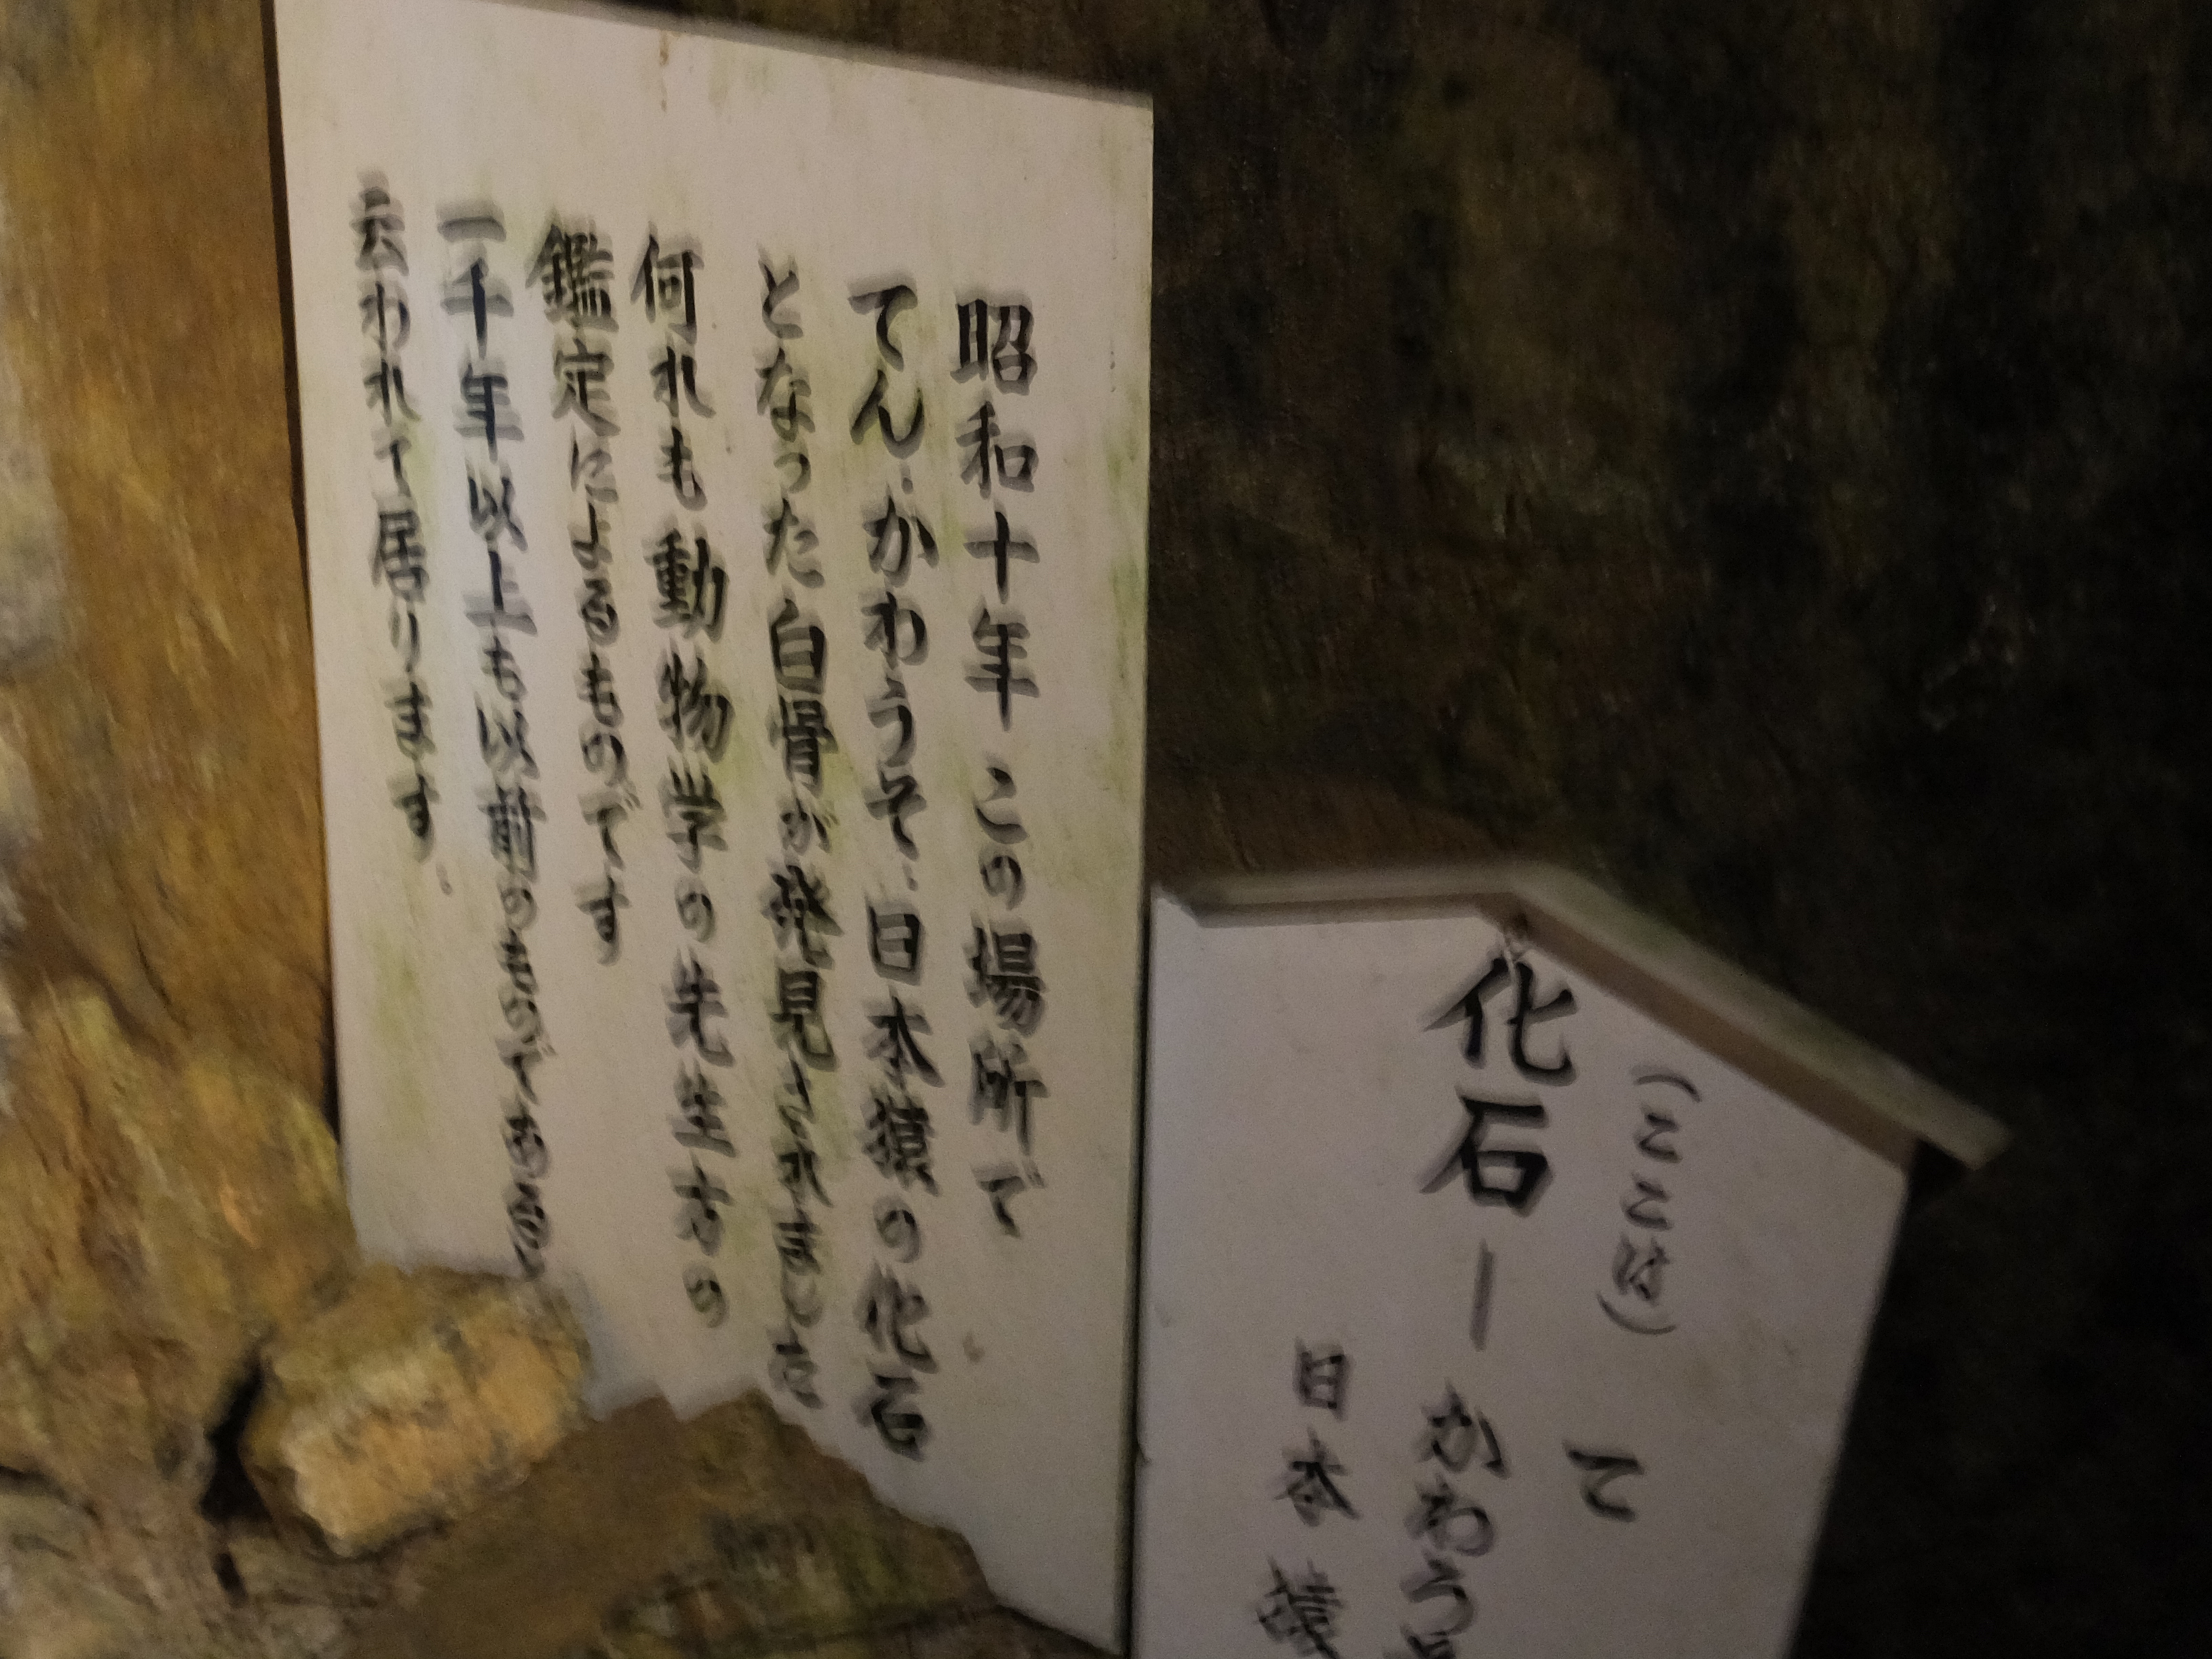 昭和十年 この場所で
てん.かわうそ.日本猿の化石
となった白骨が発見されました
何れも動物学の先生方の
鑑定によるものです
一千年以上も以前のものであると
云われて居ります.
(ここは)
て
化石ーかわう
日本猿